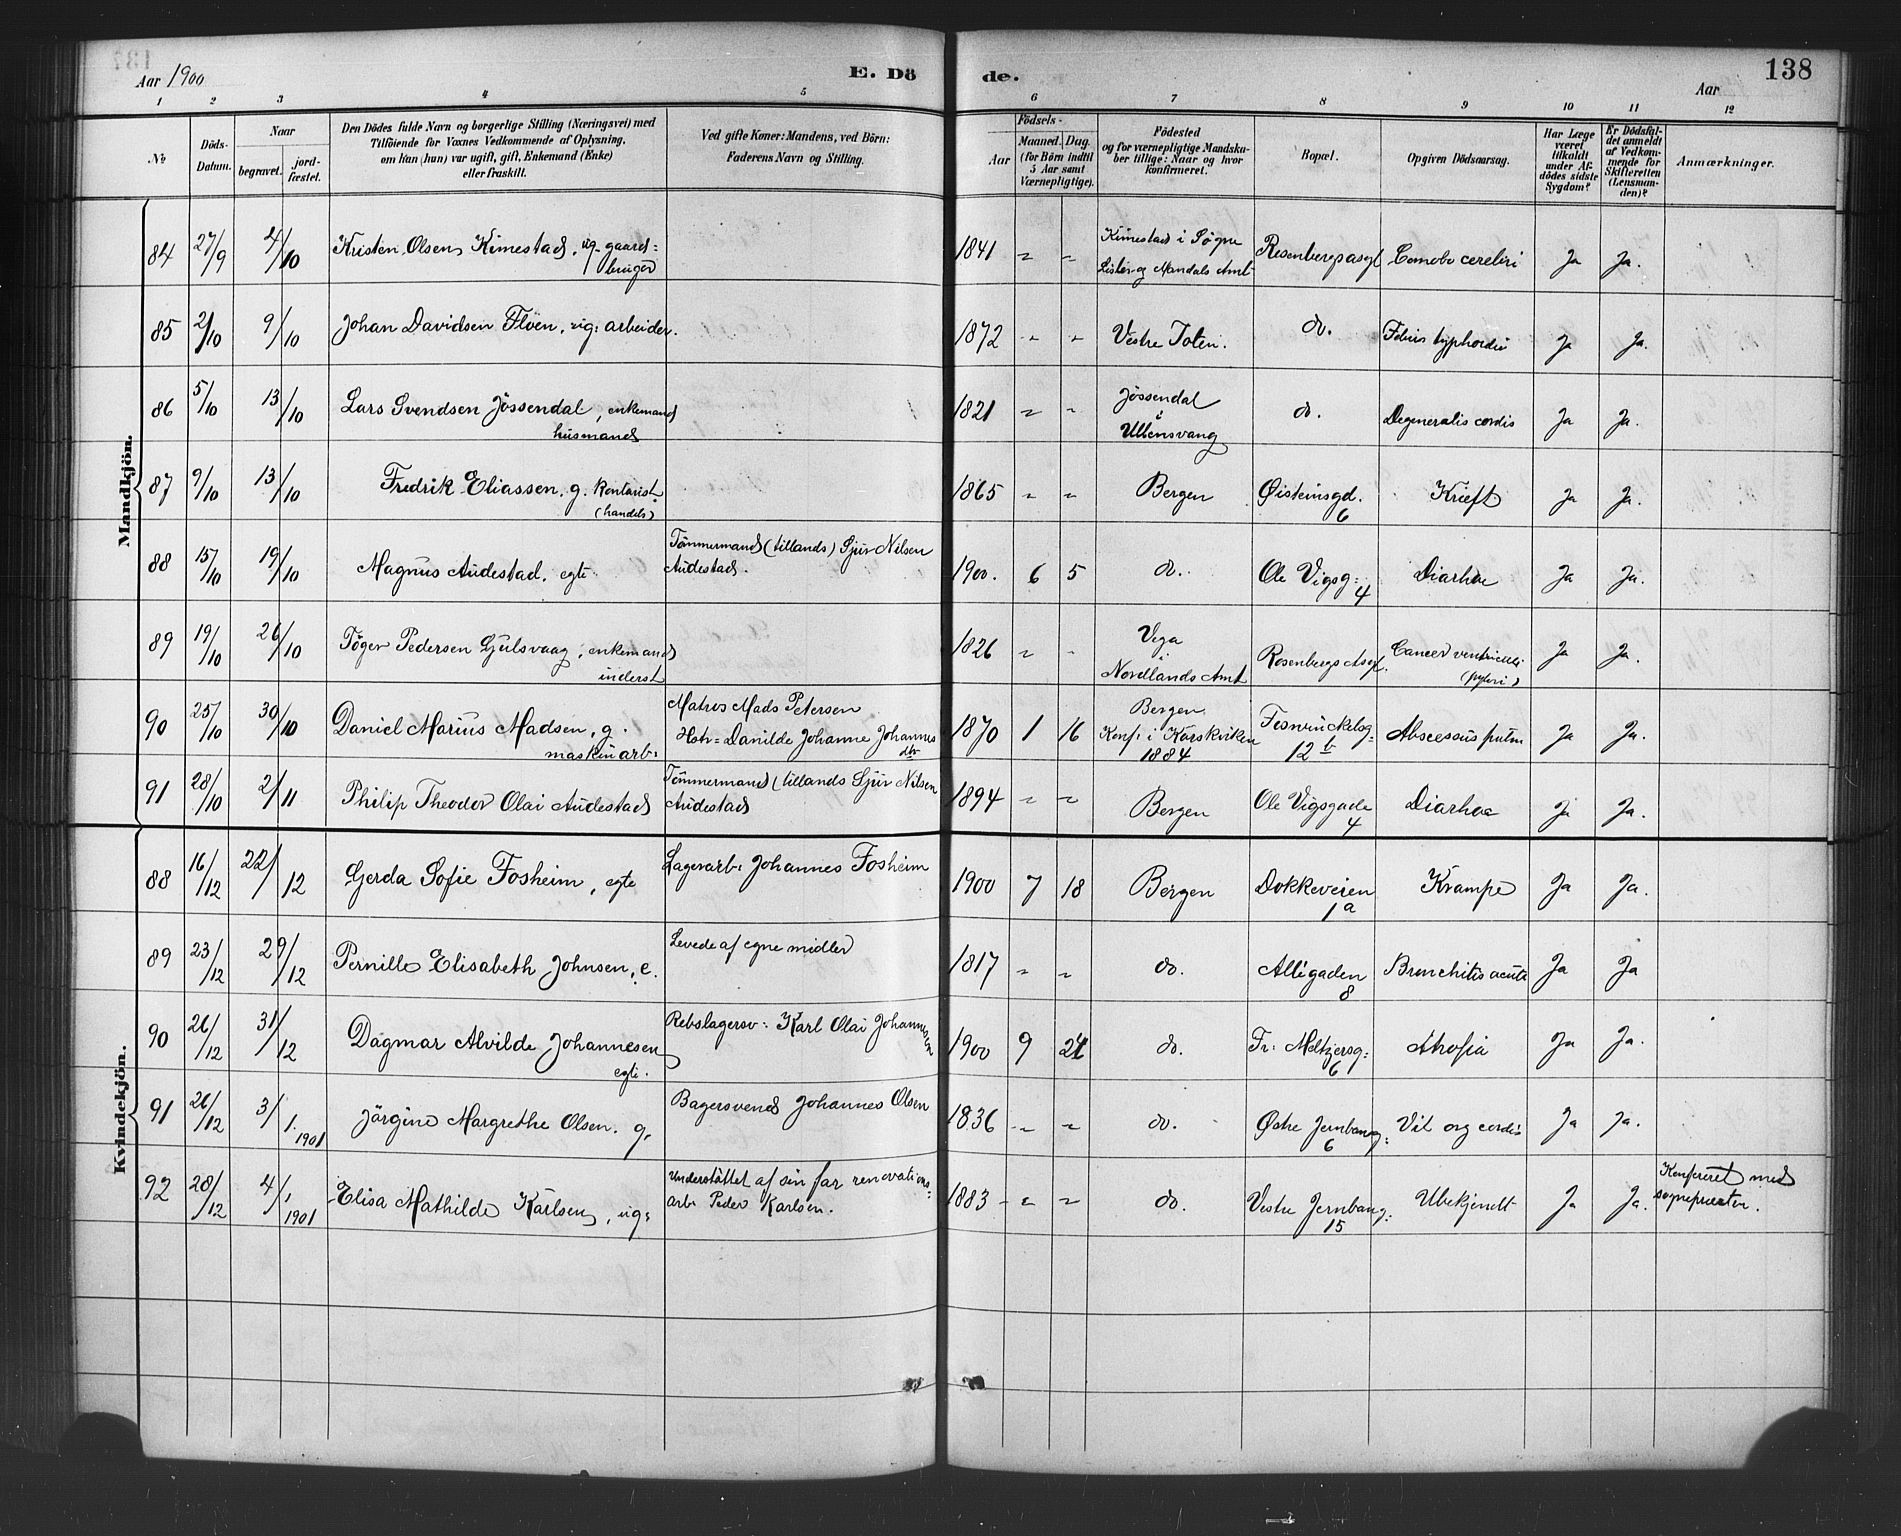 Aar 1900
E. Dö
de.
138
Aar
1 2 3 4 5 6 7 8 9 10 11 12
№
Döds-Datum.
Naar
begravet.
jord-fæstet.
Den Dödes fulde Navn og borgerlige Stilling (Næringsvei) med
Tilföiende for Voxnes Vedkommende af Oplysning,
om hun (han) var ugift, gift, Enkemand (Enke)
eller fraskilt.
Ved gifte Koner: Mandens, ved Börn:
Faderens Navn og Stilling.
Födsels-
Aar
Maaned. Dag.
(for Börn indtil
5 Aar samt
Værnepligtige).
Födested
og for værnepligtige Mandska-
ber tillige: Naar og hvor
konfirmeret.
Bopæl.
Opgiven Dödsaarsag.
Har Læge
været
tilkaldt
under Af-
dödes sidste
Sygdom?
Er Dödsfal-
det anmeldt
af Vedkom-
mende for
Skifteretten
(Lensman-
den)?
Anmærkninger.
Mandkjön.
84 27/9 4/10 Kristen Olsen Kimestad, ug. gaard=
bruger
1841 " " Kimestad i Søgne
Lister og Mandals Amt
Rosenbergs asyl
cerebri Ja Ja.
85 2/10 9/10 Johan Davidsen Flöen, ug: arbeider.
1872 " " Vestre Toten. do. Febris typhoidea Ja Ja.
86 5/10 13/10 Lars Svendsen Jössendal, enkemand
husmand
1821 " " Jössendal
i
Ullensvang
do. Degeneratio cordis Ja Ja.
87 9/10 13/10 Fredrik Eliassen, g. kontorist
(handels)
1865 " " Bergen Øisteinsgd.
6
Kræft Ja Ja.
88 15/10 19/10 Magnus Audestad, egte
Tömmermand (tillands) Sjur Nilsen
Audestad.
1900. 6 5 do. Ole Vigsg:
4
Diarhoe Ja Ja.
89 19/10 26/10 Töger Pedersen Gulsvaag, enkemand
inderst
1826 " " Vega
i
Nordlands Amt
Rosenbergs Asyl. Cancer ventriculi
Ja Ja.
90 25/10 30/10 Daniel Marius Madsen, g.
maskinarb:
Matros Mads Petersen
Hstr= Danilde Johanne Johannes
dtr
1870 1 16 Bergen
Konf: i Korskirken
1884
Foswinckelsg=
12 b
Abscessus pulm Ja Ja.
91 28/10 2/11 Philip Theodor Olai Audestad
Tömmermand (tillands Sjur Nilsen
Audestad
1894 " " Bergen Ole Vigsgade
4
Diarhoe Ja Ja.
Kvindekjön.
88 16/12 22/12 Gerda Sofie Fosheim, egte
Lagerarb: Johannes Fosheim
1900 7 18 Bergen Dokkeveien
1 a
Krampe Ja Ja.
89 23/12 29/12 Pernille Elisabeth Johnsen, e.
Levede af egne midler
1817 " " do. Allégaden
8
Bronchitis acuta Ja Ja
90 26/12 31/12 Dagmar Alvilde Johannesen
egte.
Rebslagersv: Karl Olai Johannesen
1900 9 24 do. Fr: Meltzersg:
6
Atrofia Ja Ja.
91 26/12 3/1. 1901 Jörgine Margrethe Olsen. g.
Bagersvend Johannes Olsen
1836 " " do. Østre Jernbaneg:
6
Vit org cordis Ja Ja.
92 28/12 4/1 1901 Elisa Mathilde Karlsen, ug:
Understöttet af sin far renovations=
arb: Peder Karlsen.
1883 " " do. Vestre Jernbaneg:
15
Ubekjendt Ja Ja.
Konfereret med
sognepræsten.